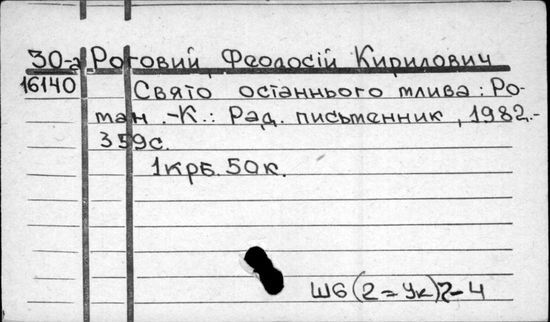 30-а Роговий Феодосій Кирилович
16140 Свято останнього млива: Ро-
ман .-К.: Рад. письменник, 1982.-
359с.
1крб. 50к.
Ш6(2=Ук)7-4